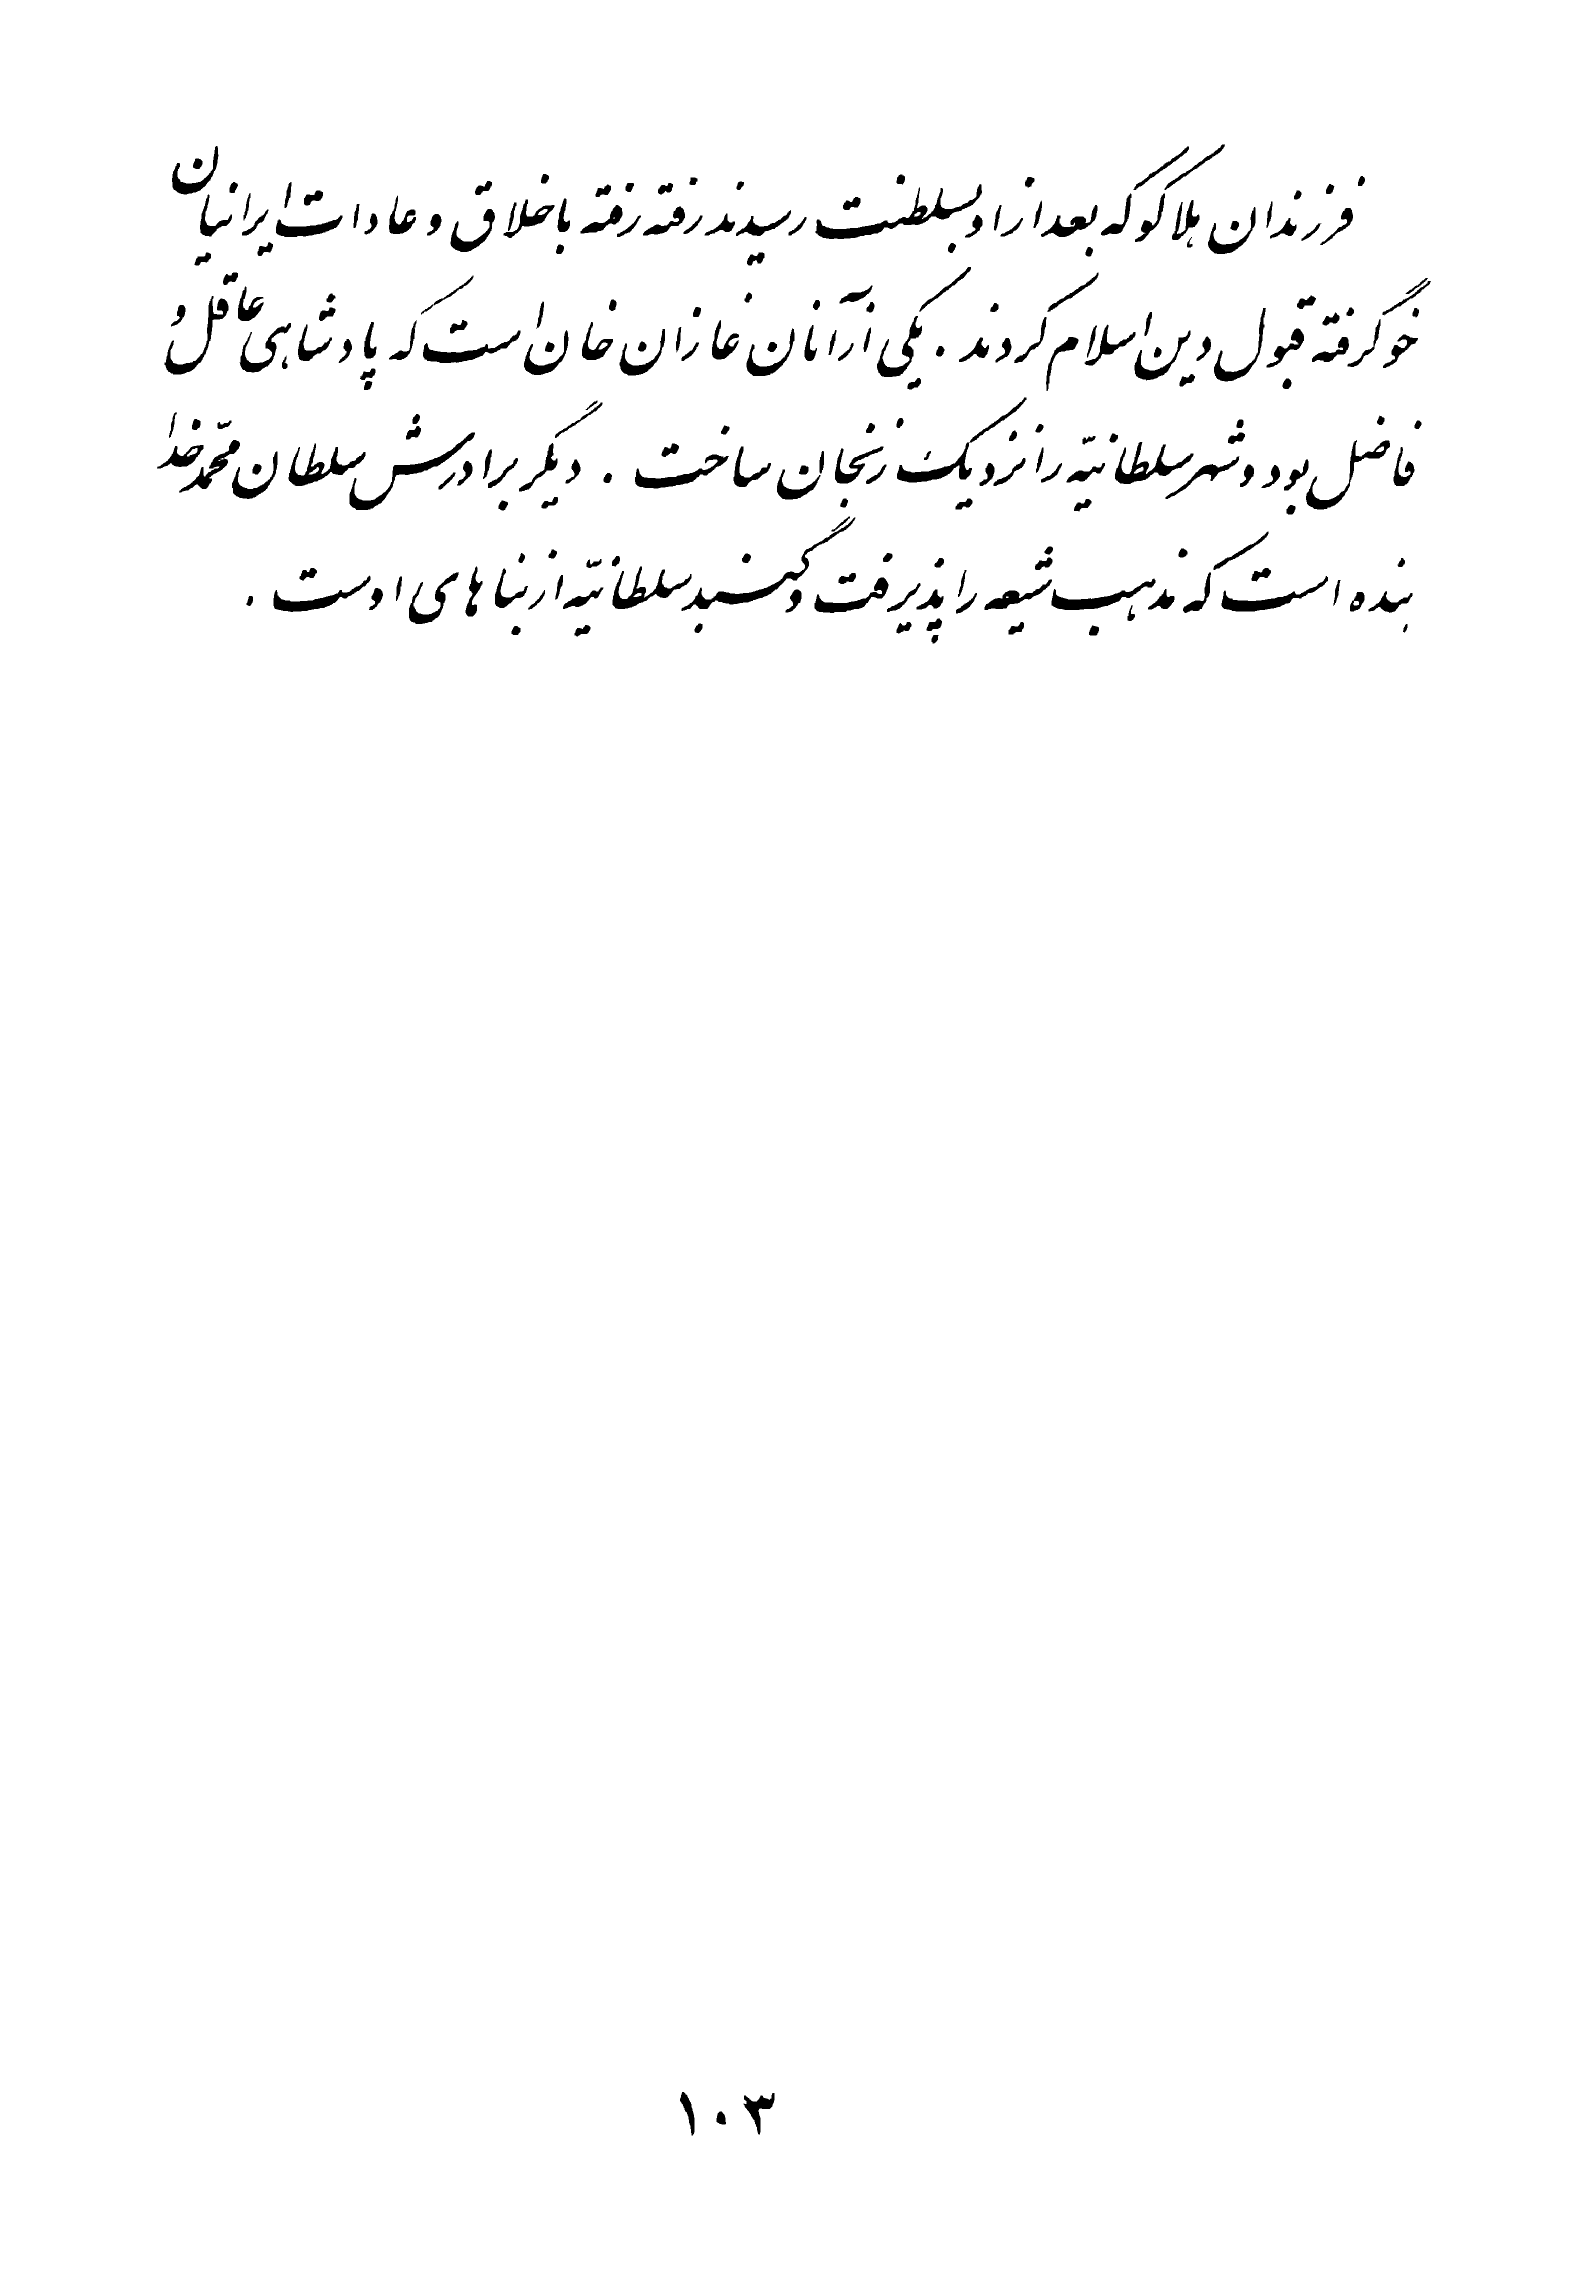 فرزندان هلاکو که بعد از او بسلطنت رسیدند رفته رفته باخلاق و عادات ایرانیان
خو گرفته قبول دین اسلام کردند . یکی از آنان غازان خان است که پادشاهی عاقل و
فاضل بود و شهر سلطانیّه را نزدیک زنجان ساخت . دیگر برادرش سلطان محمّد خدا
بنده است که مذهب شیعه را پذیرفت و گنبد سلطانیّه از بناهای اوست .
۱۰۳